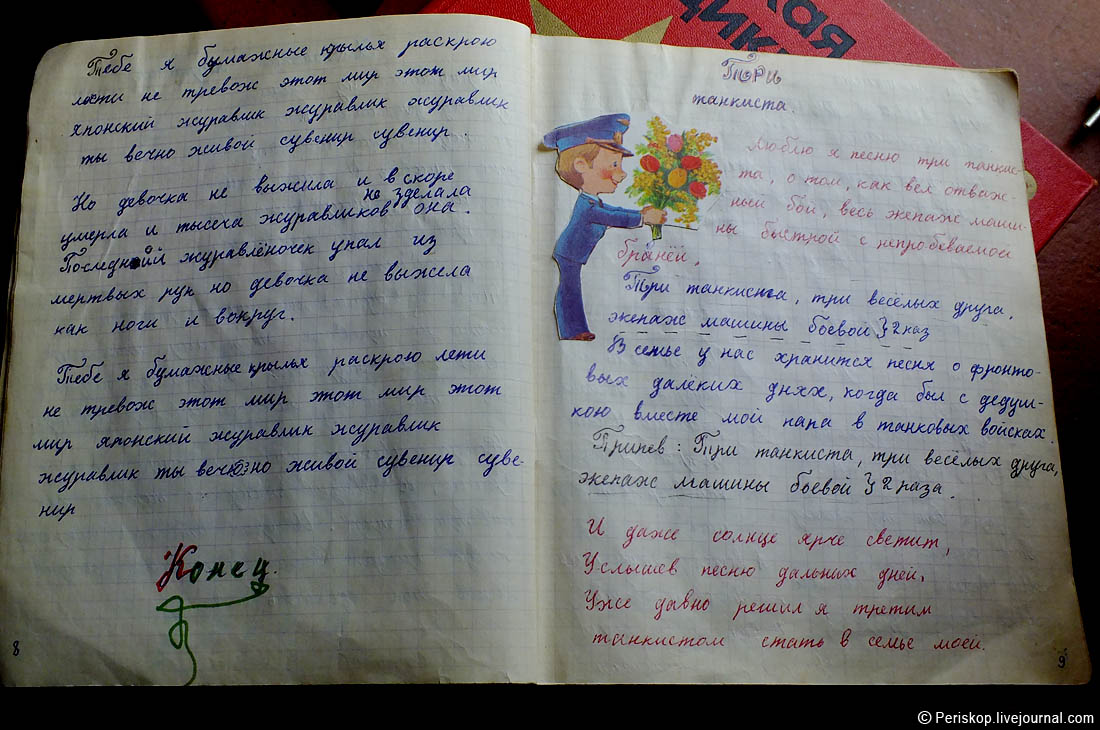 Тебе я бумажные крылья раскрою
лети не тревож этот мир этот мир
японский журавлик журавлик журавлик
ты вечно живой сувенир сувенир.
Но девочка не выжила и в скоре
умерла и тысеча журавликов не зделала она.
Последний журавлёночек упал из
мертвых рук но девочка не выжела
как ноги и вокруг.
Тебе я бумажные крылья раскрою лети
не тревож этот мир этот мир этот
мир японский журавлик журавлик
журавлик ты вечно живой сувенир суве-
нир
Конец.
8
Три
танкиста.
Люблю я песню три танкис-
та, о том, как вёл отваж-
ный бой, весь экепаж маши-
ны быстрой с непробеваемой
бранёй,
Три танкиста, три весёлых друга,
экепаж машины боевой } 2 раз
В семье у нас хранится песня о фронто-
вых далёких днях, когда был с дедуш-
кою вместе мой папа в танковых войсках.
Припев: Три танкиста, три весёлых друга,
экепаж машины боевой } 2 раза.
И даже солнце ярче светит,
Услышев песню дальних дней,
Уже давно решил я третим
танкистом стать в семье моей.
9
© Periskop.livejournal.com